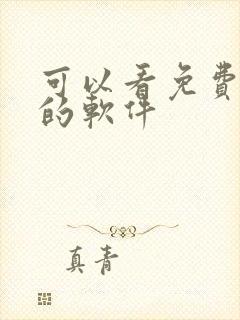 可以看免費
的軟件
真青